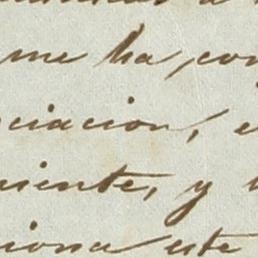 me ha, con
ciacion, e
niente, y
ciona este